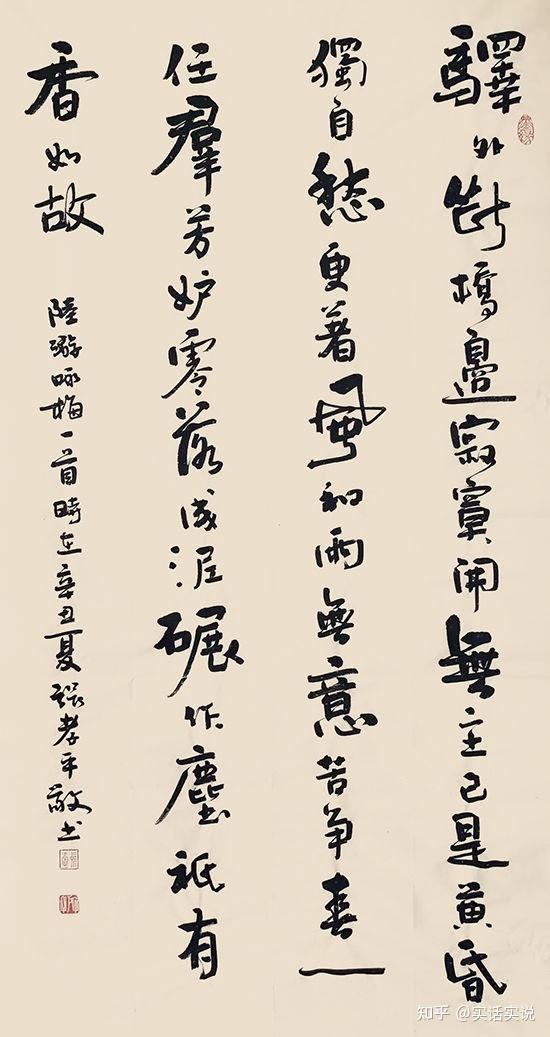 驛外斷橋邊寂寞開無主已是黃昏
獨自愁更著風和雨無意苦爭春一
任羣芳妒零落成泥碾作塵祇有
香如故
陸游咏梅一首時在辛丑夏張孝平敬书
知乎 @实话实说